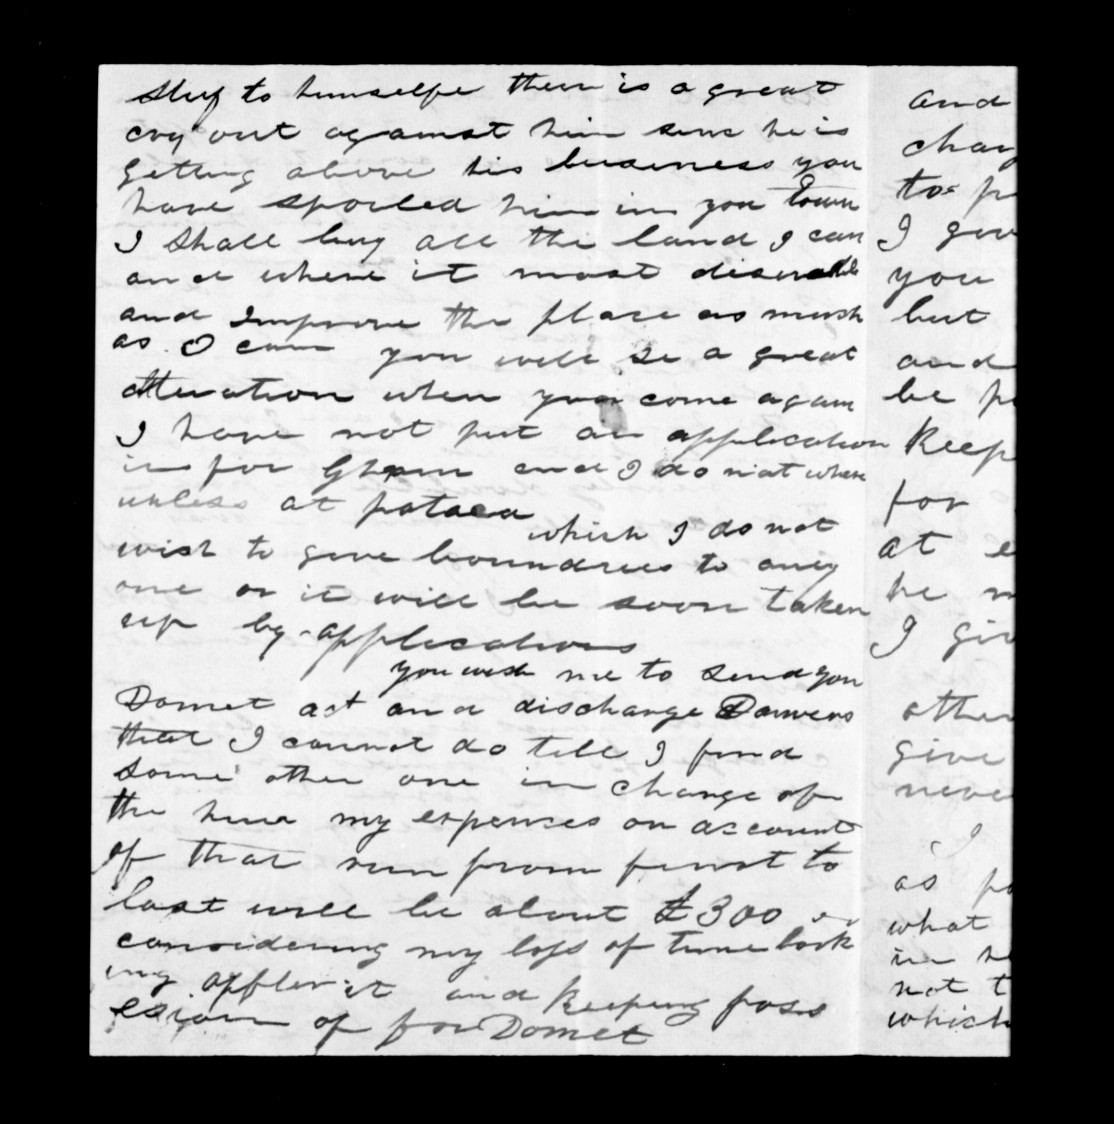 to himselfe their is a great
cry out against him sins he is
getting above his business you
have spoiled him in you town
I shall buy all the land I can
and where it most disirable
and improve the place as mush
as I can you will se a great
alteration when you come again
I have not put an application
in for and I do not when
unless at patāea
which I do not
wish to give boundries to aniy
one or it will be soon taken
up by applications
you wish me to send you
Domet act and discharge Danvers
that I cannot do till I find
some other one in charge of
the hear my expenses on account
of that run from furst to
last will be about £300 or
considering my loss of time look
ing after it and keeping poss
esion of for Domet
and
to
I giv
you
but
and
be
keep
for
at
he
I giv
other
give
never
I
as
what
in
not t
which